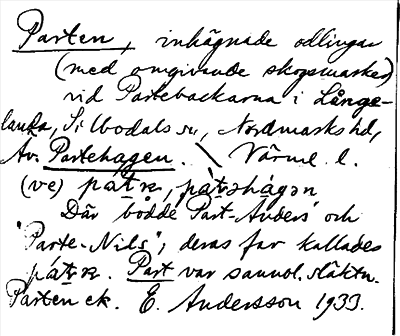 Parten, inhägnade odlingar
(med omgivande skogsmarker)
vid Partebackarna i Långe-
landa, Silbodals sn, Nordmarks hd,
Av. Partehagen. Värml. l.
(ve) pat
Där bodde "Part-Anders" och
"Parte-Nils", deras far kallades
Part var sannol. släktn.
Parten ek. E. Andersson 1933.